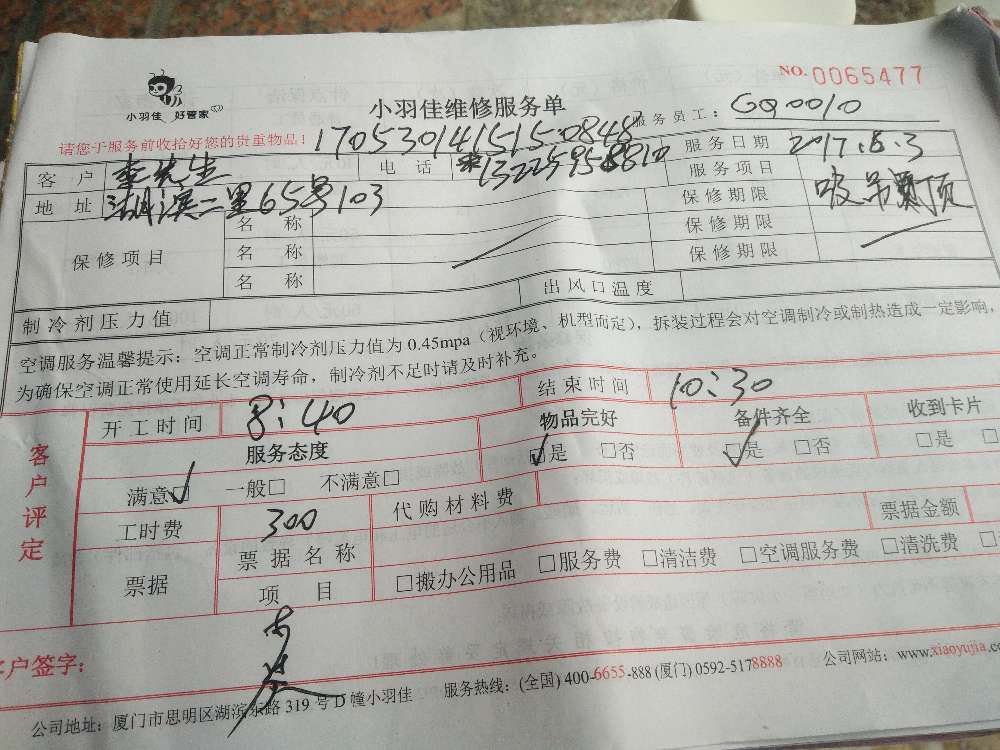 NO.0065477
小羽佳 好管家
小羽佳维修服务单
服务员工：GQ0010
请您于服务前收拾好您的贵重物品！
170530141515-0848
客户 李先生 电话 13225958810 服务日期 2017.6.3
地址 湖滨二里65号103 服务项目
保修项目 名称 保修期限
名称 保修期限
名称 保修期限
制冷剂压力值 出风口温度
空调服务温馨提示：空调正常制冷剂压力值为0.45mpa（视环境、机型而定），拆装过程会对空调制冷或制热造成一定影响，
为确保空调正常使用延长空调寿命，制冷剂不足时请及时补充。
客户评定
开工时间 8:40 结束时间 10:30
服务态度 物品完好 备件齐全 收到卡片
满意☑ 一般□ 不满意□ ☑是 □否 ☑是 □否 □是 □
工时费 300 代购材料费 票据金额
票据 票据名称
项目 □搬办公用品 □服务费 □清洁费 □空调服务费 □清洗费
客户签字：
公司地址：厦门市思明区湖滨东路319号D幢小羽佳 服务热线：(全国) 400-6655-888 (厦门) 0592-5178888 公司网站：www.xiaoyujia.c